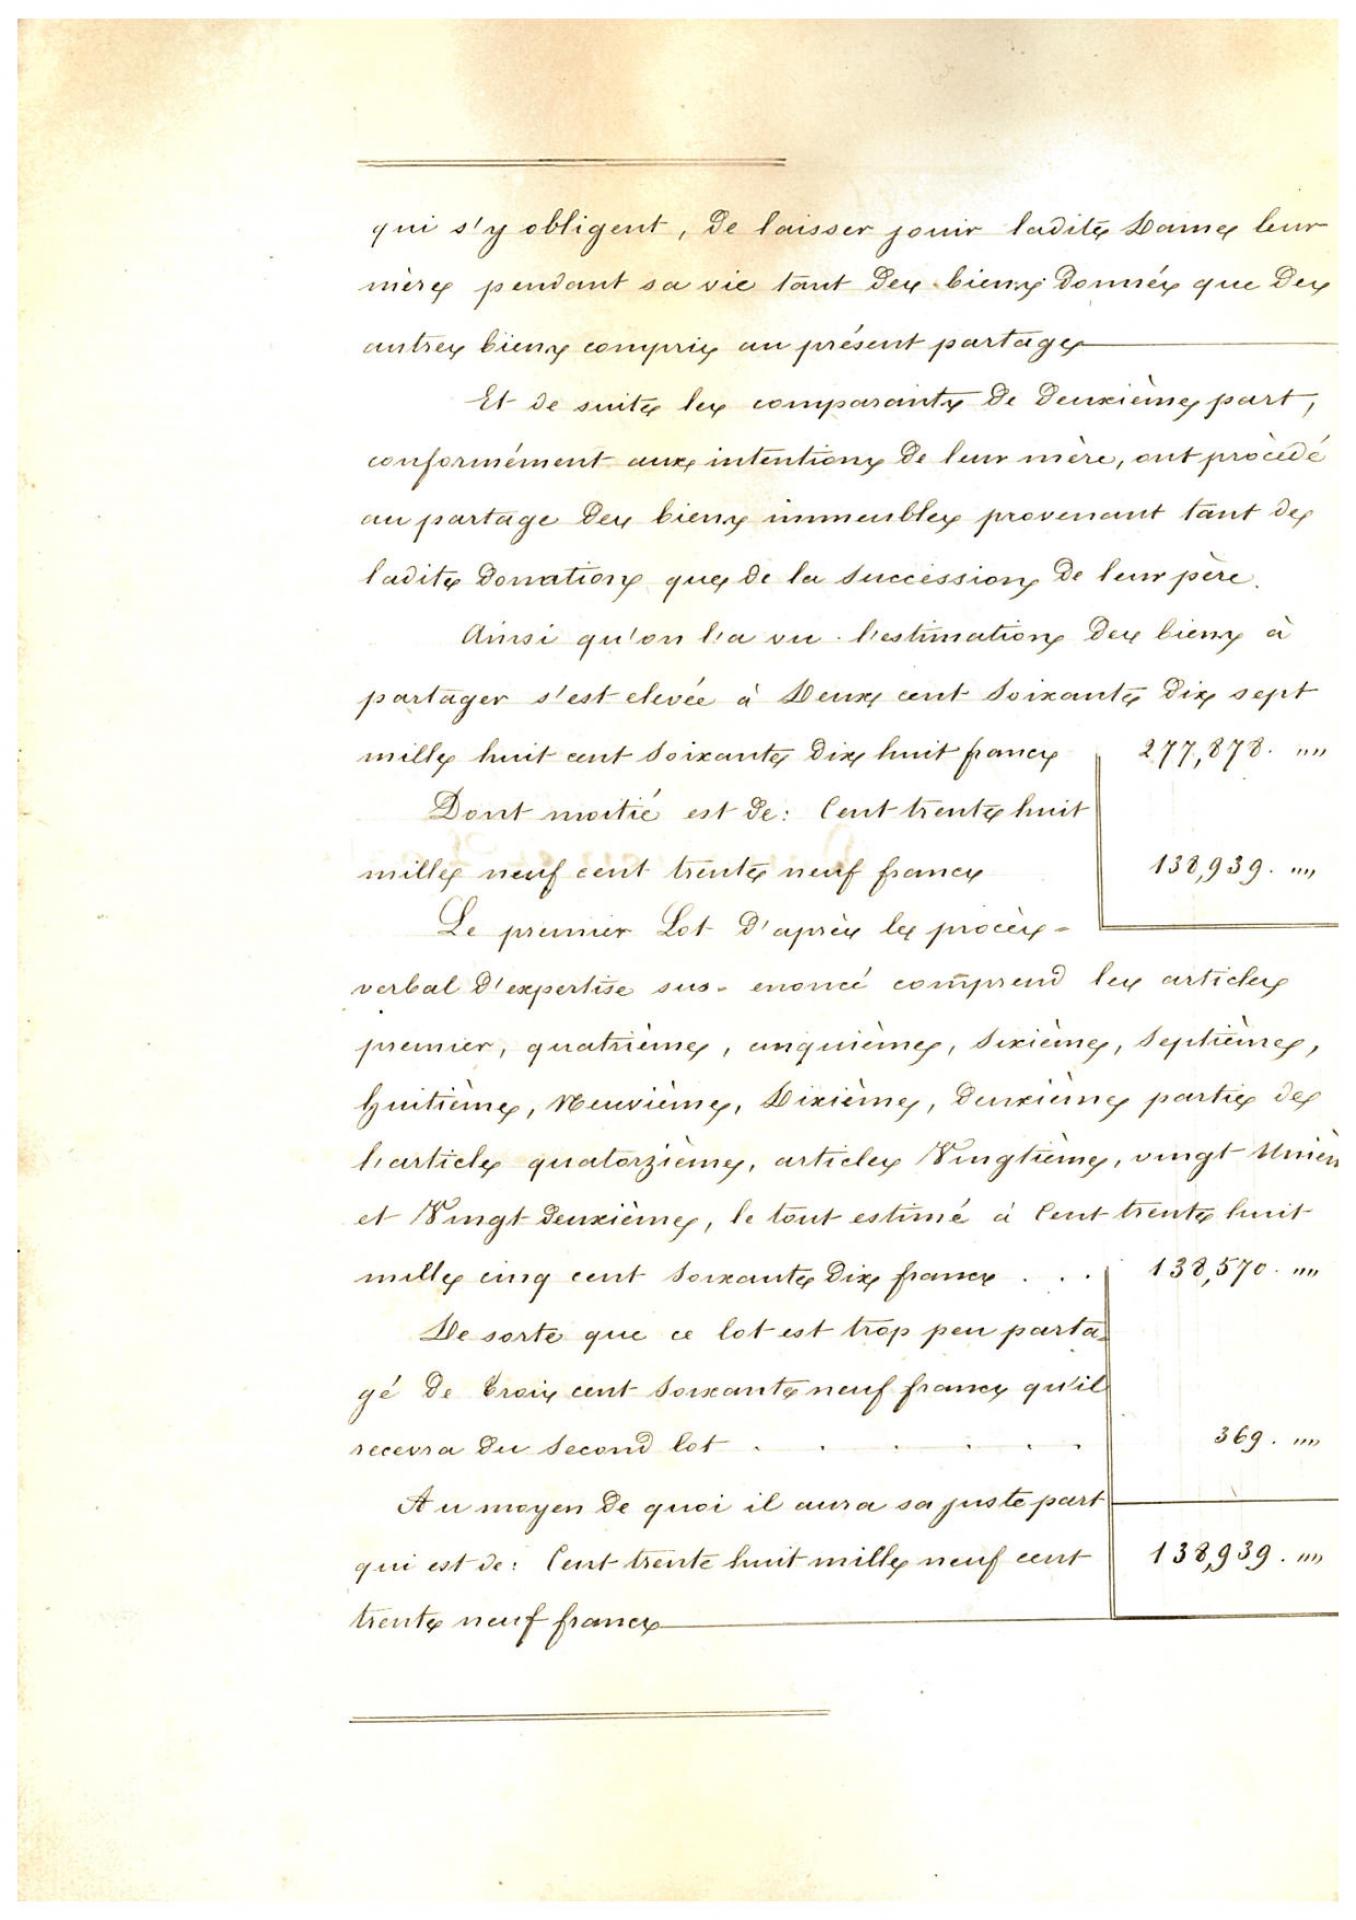 qui s'y obligent, de laisser jouir ladite Dame leur
mère pendant sa vie tant des biens donnés que des
autres biens compris au présent partage
Et de suite les comparants de deuxième part,
conformément aux intentions de leur mère, ont procèdé
au partage des biens immeubles provenant tant de
ladite donation que de la succession de leur père.
Ainsi qu'on l'a vu l'estimation des biens à
partager s'est elevée à Deux cent soixante dix sept
mille huit cent soixante dix huit francs 277,878. ""
Dont moitié est de : Cent trente huit
mille neuf cent trente neuf francs 138,939. ""
Le premier Lot d'après le procès-
verbal d'expertise sus-enoncé comprend les articles
premier, quatrième, cinquième, sixième, septième,
huitième, Neuvième, Dixième, deuxième partie de
l'article quatorzième, articles Vingtième, vingt Unièm
et Vingt deuxième, le tout estimé à Cent trente huit
mille cinq cent soixante dix francs . . . 138,570. ""
De sorte que ce lot est trop peu parta-
gé de Trois cent soixante neuf francs qu'il
recevra du second lot . . . . . . 369. ""
Au moyen de quoi il aura sa juste part
qui est de : Cent trente huit mille neuf cent 138,939. ""
trente neuf francs